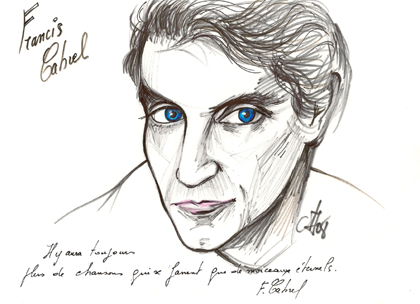 Francis
Cabrel
Il y aura toujours
plus de chansons qui se fanent que de morceaux éternels.
F. Cabrel